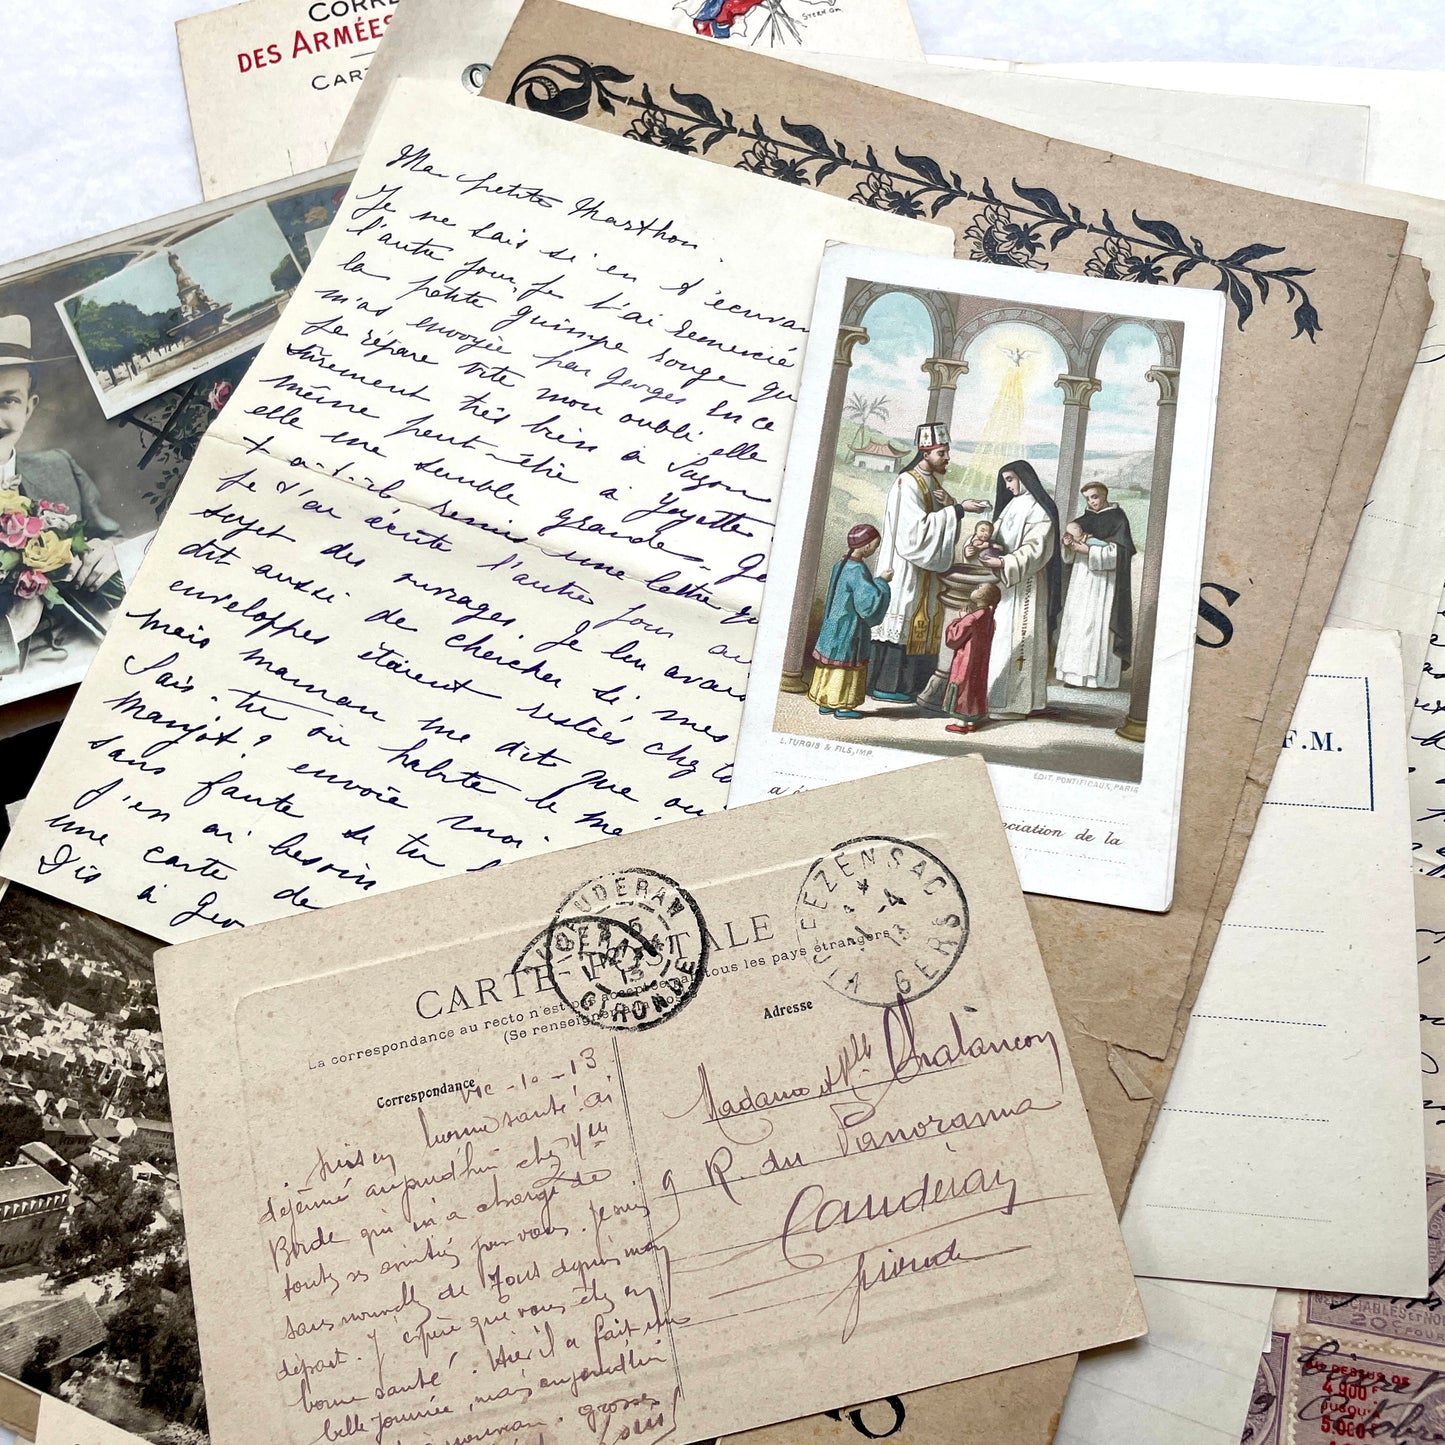 CORRE
DES ARMÉES
CART
Ma petite Marthon
Je ne sais si en t'écrivan
l'autre jour, je t'ai remercié
la petite guimpe rouge qu
m'as envoyée par Georges. En ce
Je répare vite mon oubli elle
sûrement très bien à Suzon
même peut-être à Yoyette
elle me semble grande. Ge
t-a-t-il remis une lettre qu
Je t'ai écrite l'autre jour au
sujet des ouvrages. Je lui avais
dit aussi de chercher si mes
enveloppes étaient restées chez to
mais maman me dit que oui
Sais-tu où habite le Mé
Manjot? envoie moi
sans faute si tu
J'en ai besoin
une carte de
Dis à Geo
L. TURGIS & FILS, IMP.
EDIT. PONTIFICAUX, PARIS
ociation de la
S
F.M.
CARTE POSTALE
La correspondance au recto n'est pas acceptée par tous les pays étrangers
(Se renseigner à la Poste)
CAUDERAN
GIRONDE
VIC-FEZENSAC
GERS
Correspondance
Adresse
Vic-10-13
bonne santé. ai
déjeuné aujourd'hui chez Mme
Borde qui m'a chargé de
toutes ses amitiés pour vous. Je suis
sans nouvelles de vous depuis mon
départ. J'espère que vous êtes en
bonne santé. Hier il a fait une
belle journée, mais aujourd'hui
grosses
Madame et Mlle Chatançon
9 R. du Panorama
Caudéran
Gironde
NÉGOCIABLES ET NON
20C POUR
AU DESSUS DE
4.900F
JUSQU'A
5.000F